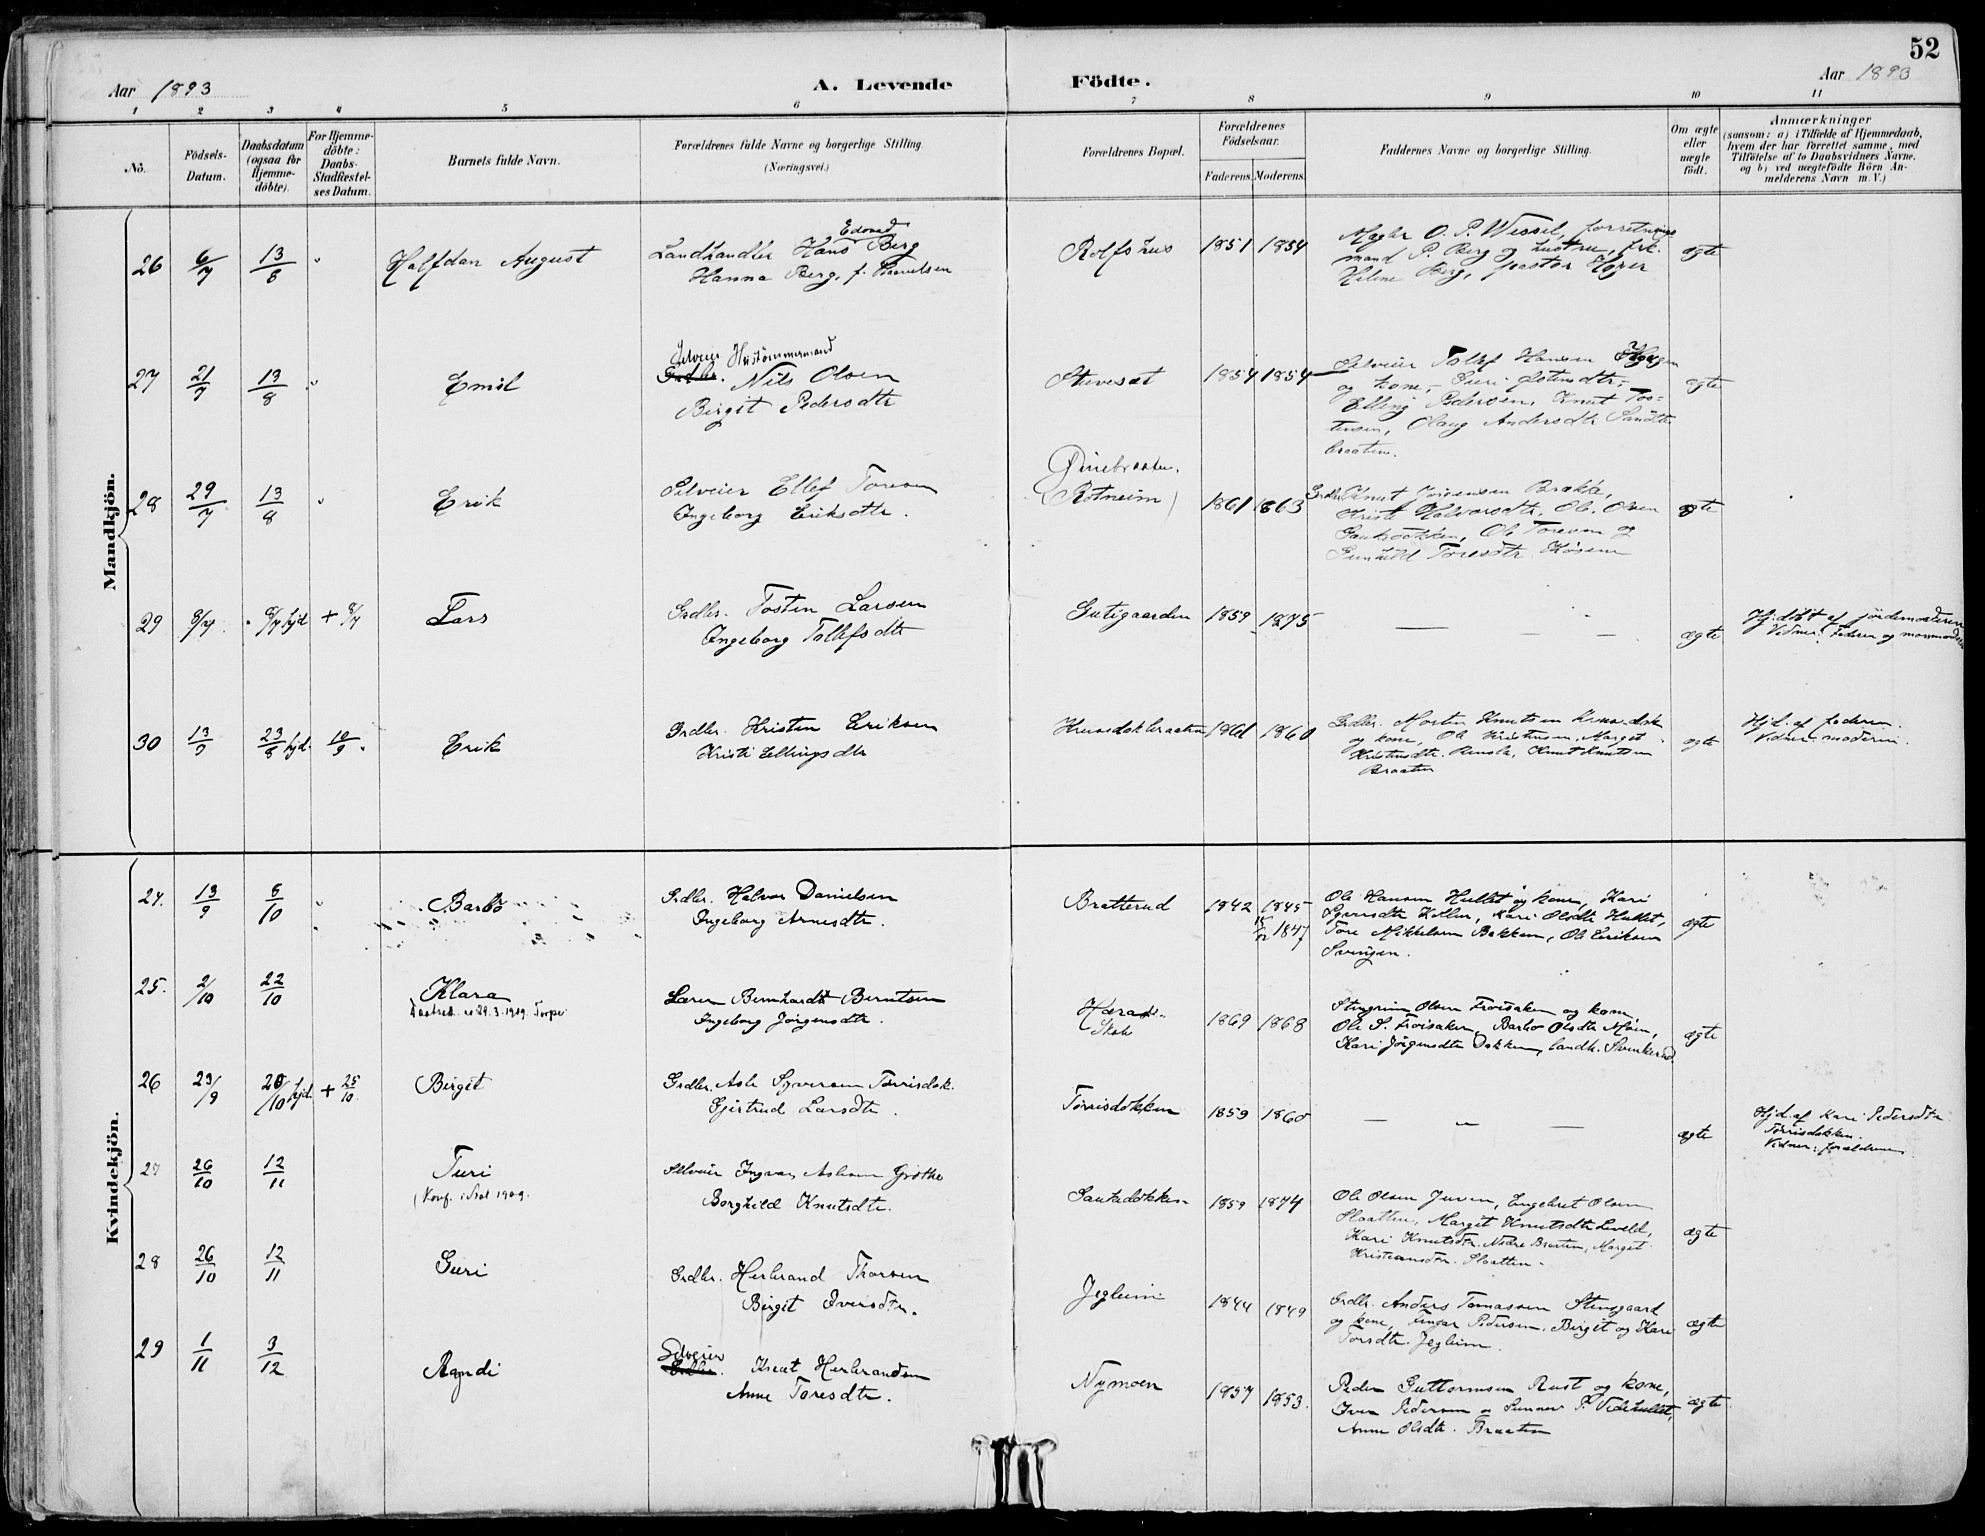 52
Aar 1893 A. Levende Födte. Aar 1893
1 2 3 4 5 6 7 8 9 10 11
No.
Födsels-Datum.
Daabsdatum (ogsaa for Hjemme-döbte).
For Hjemme-döbte: Daabs-Stadfæstel-ses Datum.
Barnets fulde Navn.
Forældrenes fulde Navne og borgerlige Stilling.
(Næringsvei.)
Forældrenes Bopæl.
Forældrenes Födselsaar.
Faderens. Moderens.
Faddernes Navne og borgerlige Stilling.
Om ægte eller uægte födt.
Anmærkninger
(saasom: a) i Tilfælde af Hjemmedaab,
hvem der har forrettet samme, med
Tilföielse af to Daabsvidners Navne.
og b) ved uægtefödte Börn An-
melderens Navn m. V.)
Mandkjön.
26 6/7 13/8 " Halfdan August
Landhandler Hans Edvard Berg
Hanna Berg, f.
Rolfshus 1851 1854
Mægler O. P. Wessel, forretnings
mand P. Berg og hustru, frk.
Helene Berg, pastor
ægte
27 21/7 13/8 " Emil
Selveier Hustömmermand
Grdbr. Nils Olsen
Birgit Pedersdtr
Stuvesæt 1854 1854
Selveier Tollef Hansen
og kone, Guri
Elling Pedersen, Knut Tos-
tensen, Olaug Andersdtr
braaten.
ægte
28 29/7 13/8 " Erik
Selveier Ellef Toresen
Ingeborg Eriksdtr.
(Rotneim) 1861 1863
Grdbr. Knut Jörgensen Brække,
Kristi Halvorsdtr, Ole Olsen
Ole Toresen og
Gunhild Toresdtr
ægte
29 8/7 8/7 hjd + 8/7 Lars
Grdbr. Tosten Larsen
Ingeborg Tollefsdtr
Gutigaarden 1859 1875
— —
ægte
Hj.döbt af jordemoderen
Vidner: Faderen og mormoderen
30 13/7 23/8 hjd. 10/9. Erik
Grdbr. Kristen Eriksen
Kristi Ellingsdtr
1861 1860
Grdbr. Morten Knutsen
og kone, Ole Kristensen, Margit
Kristensdtr. Knut Knutsen
Braaten
ægte
Hjd. af faderen.
Vidner: moderen.
Kvindekjön.
24. 13/9 8/10 " Barbo
Grdbr. Halvor Danielsen
Ingeborg Arnesdtr.
Bratterud 1842 1845
15/12 1847
Ole Hansen Hullet og kone, Kari
Kari Olsdtr Hullet,
Tore Mikkelsen Bakken, Ole Eriksen
Svingen.
ægte
25. 2/10 22/10 Klara
29.3.1909. Torpe
Lærer Bernhardt Berntsen
Ingeborg Jörgensdtr.
Skole 1869 1868
Stengrim Olsen Froisaken og kone,
Ole S. Froisaken, Barbo Olsdtr Moen,
Kari Jörgensdtr Dokken, landh. Svenkerud
ægte
26 23/9 20/10 hjd + 25/10. Birgit
Grdbr. Asle Syversen Torrisdok.
Gjertrud Larsdtr.
Torrisdokken 1859 1860
— " —
ægte
Hjd. af Kari Pedersdtr
Torrisdokken.
Vidner: forældrene
27 26/10 12/11 Turi
(Konf. i 1909.
Selveier Ingvar Aslesen Grøthe
Borghild Knutsdtr.
Sautadokken 1859 1874
Ole Olsen Juven, Engebret Olsen
Slaatten, Margit Knutsdtr Lveld,
Kari Knutsdtr. Nedre Braaten, Margit
Kristiansdtr. Slaatten.
ægte
28 26/10 12/11 Guri
Grdbr. Herbrand Thorsen
Birgit Iversdtr.
Jegleim 1844 1849
Grdbr. Anders Tomassen Stensgaard
og kone, Pedersen, Birgit og Kari
Torsdtr. Jegleim.
ægte
29 1/11 3/12 Randi
Selveier
Grdbr. Knut Herbrandsen
Anne Toresdtr.
Nymoen 1857 1853.
Peder Guttormsen Rust og kone,
Iver Pedersen o Sunnev P. Vedehullet,
Anne Olsdtr. Braaten
ægte